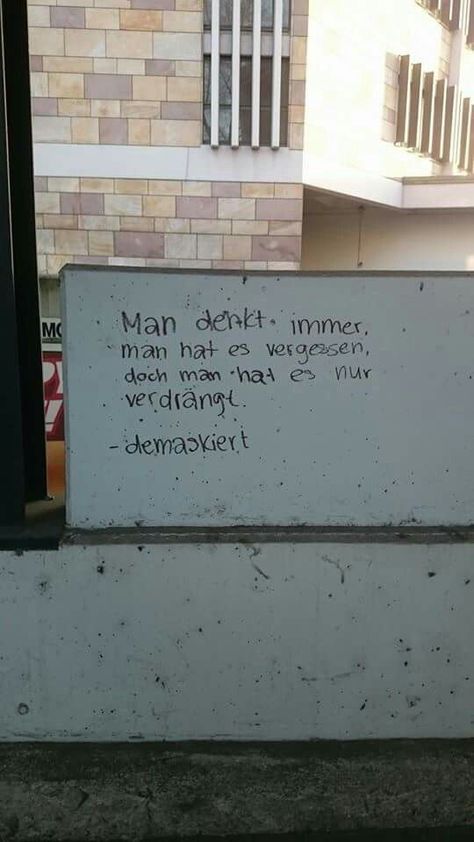 Man denkt immer,
man hat es vergessen,
doch man hat es nur
verdrängt.
- demaskiert